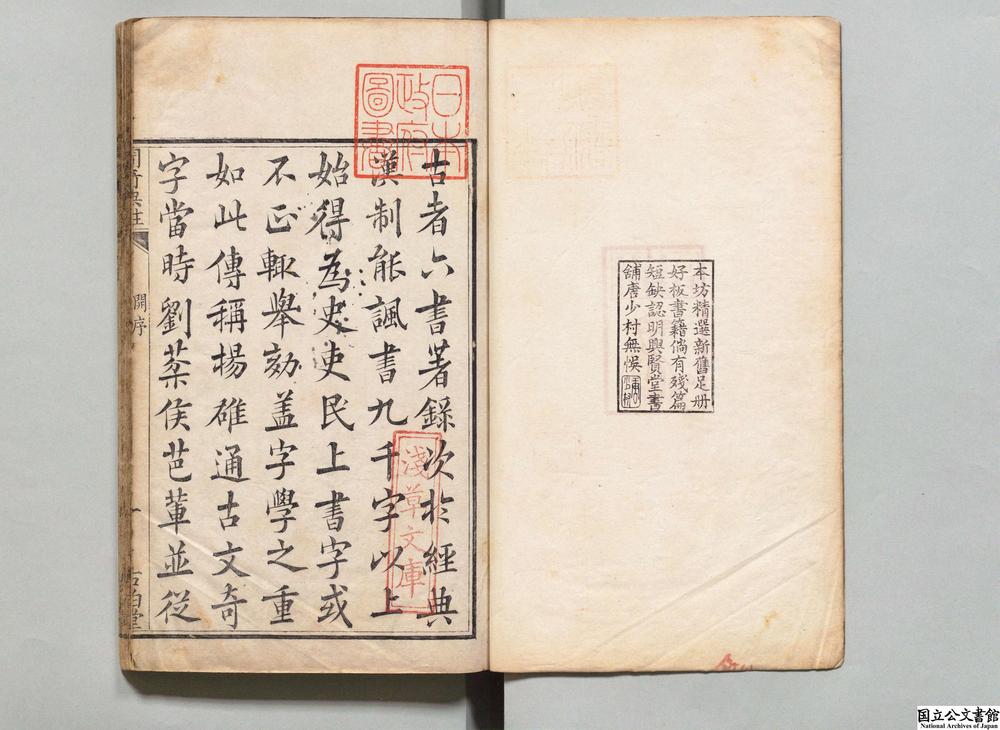 本坊精選新舊足册
好板書籍倘有殘篇
短缺認明興賢堂書
舖唐少村無悞
日本
政府
圖書
古者六書著録次於經典
漢制能諷書九千字以上
始得為史吏民上書字或
不正輙舉劾盖字學之重
如此傳稱楊碓通古文奇
字當時劉棻侯芭軰並從
淺草文庫
開序
一
国立公文書館
National Archives of Japan